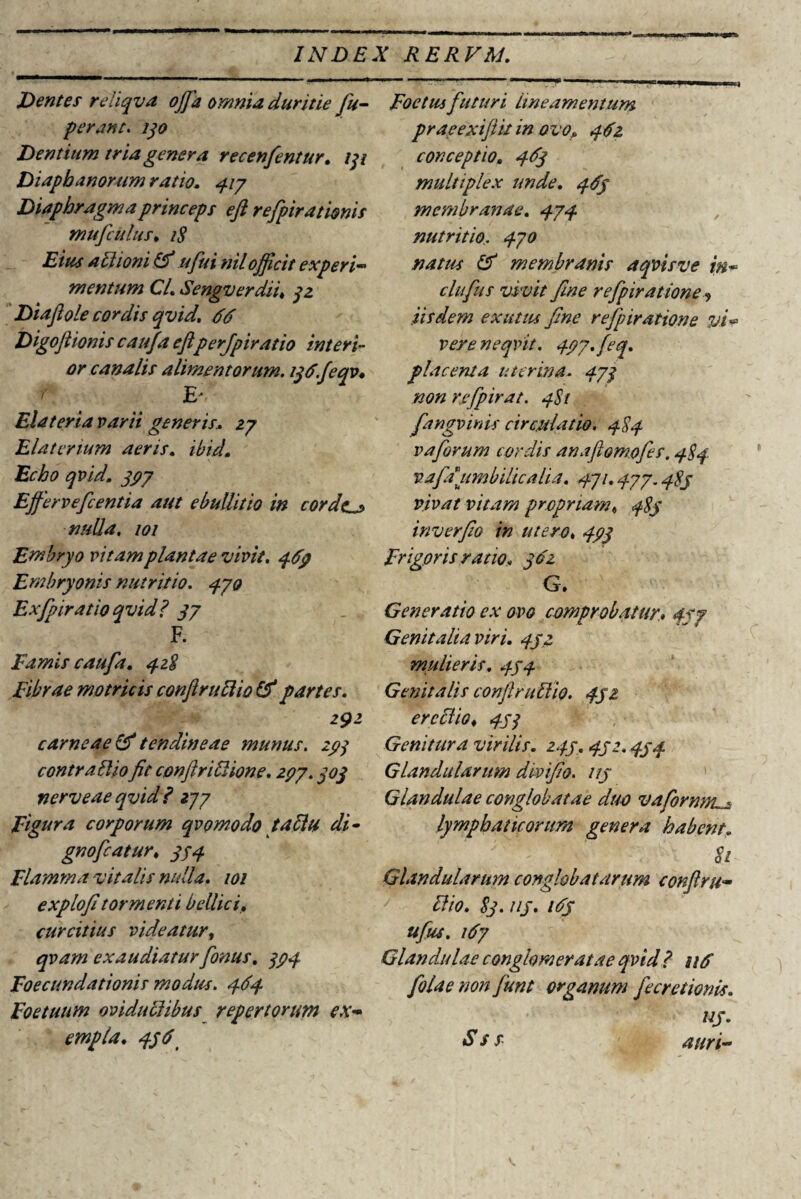 INDEX RERVM.
Dentes reliqva ossa omnia duritie su-
perant. 130
Dentium tria genera recensentur. 131
Diaphanorum ratio. 417
Diaphragma princeps est respirationis
musculus. 18
Eius actioni & usui nil officit experi-
mentum Cl. Sengverdii. 32
Diastole cordis qvid. 66
Digostionis causa est perspiratio interi-
or canalis alimentorum. 136.seqv.
E.
Elateria varii generis. 27
Elaterium aeris. ibid.
Echo qvid. 397
Effervescentia aut ebullitio in corde
nulla. 101
Embryo vitam plantae vivit. 469
Embryonis nutritio. 470
Exspiratio qvid? 37
F.
Famis causa. 428
Fibrae motricis constructio & partes.
292
carneae & tendineae munus. 293
contractio fit constrictione. 297. 303
nerveae qvid? 277
Figura corporum qvomodo tactu di-
gnoscatur. 354
Flamma vitalis nulla. 101
explosi tormenti bellici.
cur citius videatur,
qvam exaudiatur sonus. 394
Foecundationis modus. 464
Foetuum oviductibus repertorum ex-
empla. 456
Foetus futuri lineamentum
praeexistit in ovo. 462
conceptio. 463
multiplex unde. 465
membranae. 474
nutritio. 470
natus & membranis aqvisve in-
clusus vivit sine respiratione,
iisdem exutus sine respiratione vi-
vere neqvit. 497. seq.
placenta uterina. 473
non respirat. 481
sangvinis circulatio. 484
vasorum cordis anastomoses. 484
vasa umbilicalia. 471. 477. 485
vivat vitam propriam. 485
inversio in utero. 493
Frigoris ratio. 362
G.
Generatio ex ovo comprobatur. 457
Genitalia viri. 452
mulieris. 454
Genitalis constructio. 452
erectio. 453
Genitura virilis. 245. 452. 454
Glandularum divisio. 115
Glandulae conglobatae duo vasorum
lymphaticorum genera habent.
81
Glandularum conglobatarum constru-
ctio. 83. 115. 165
usus. 167
Glandulae conglomeratae qvid? 116
solae non sunt organum secretionis.
115.
Sss
auri-